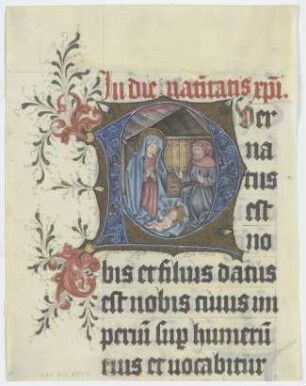 In die natiuitatis xpi.
Per
na
tus
est
no
bis et filius datus
est nobis cuius im
periū sup humerū
eius et uocabitur